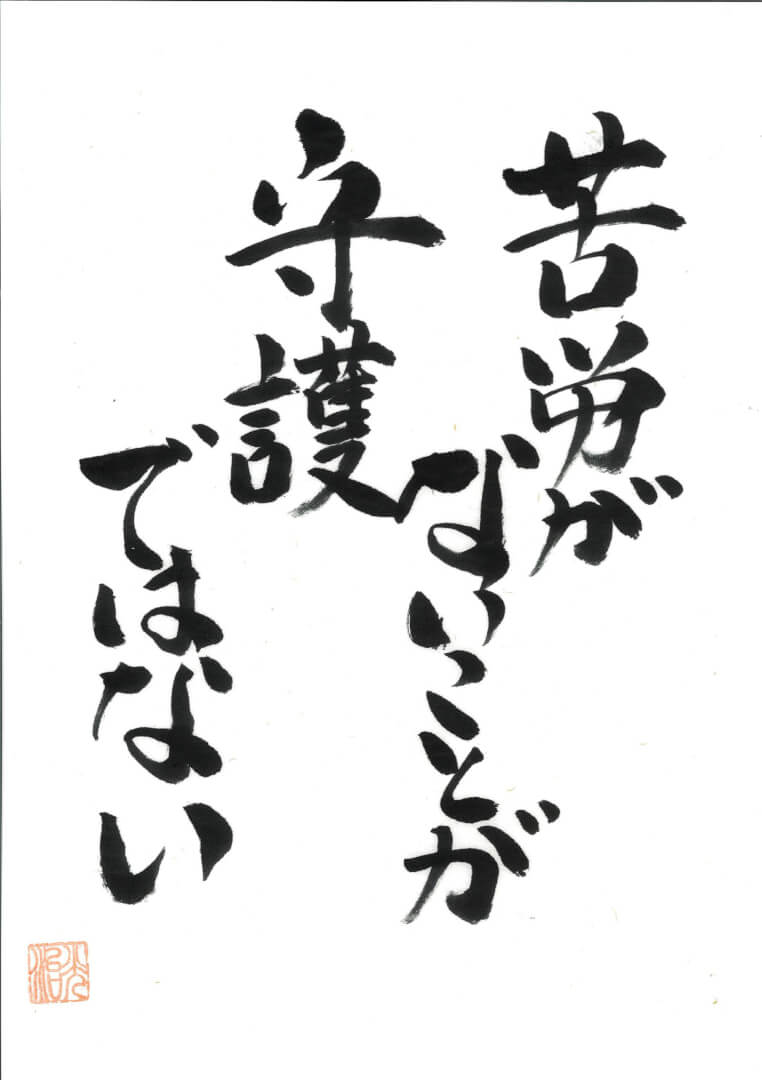 苦労が
ないことが
守護
ではない